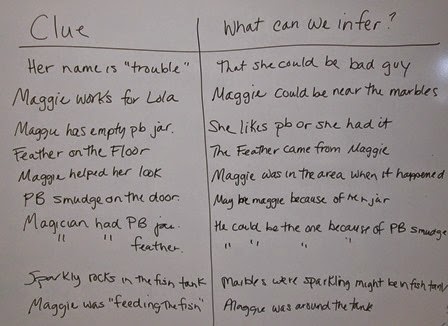 Clue What can we infer?
Her name is "trouble" That she could be bad guy
Maggie works for Lola Maggie could be near the marbles
Maggie has empty pb jar. She likes pb or she had it
Feather on the Floor The Feather came from Maggie
Maggie helped her look Maggie was in the area when it happened
PB smudge on the door. May be maggie because of her jar
Magician had PB jar. He could be the one because of PB smudge
" " " feather. " " " "
Sparkly rocks in the fish tank Marbles were sparkling might be in fish tank
Maggie was "feeding the fish" Maggie was around the tank